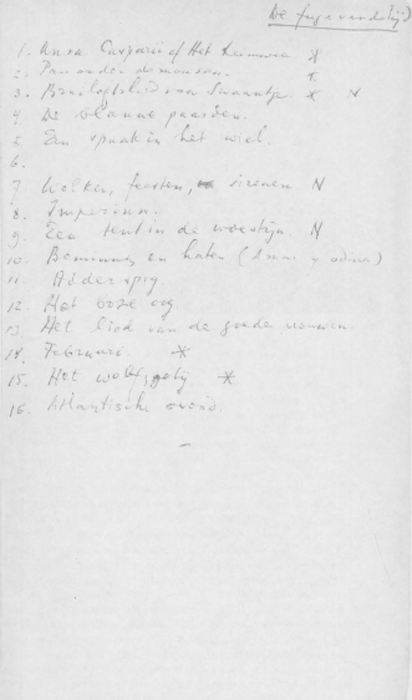 De fuga van de tijd
1. Anna Casparii of Het heimwee *
2. Pan onder de mensen. *
3. Bruiloftslied van Swaantje. * N
4. De blauwe paarden.
5 Een spaak in het wiel.
6.
7. Wolken, feesten, sirenen N
8. Imperium.
9. Een tent in de woestijn. N
10. Beminnen en haten (Amar y odiar)
11. Adderspog.
12. Het boze oog
13. Het lied van de goede vrouwen.
14. Februari *
15. Het wolfsgetij *
16. Atlantische avond.